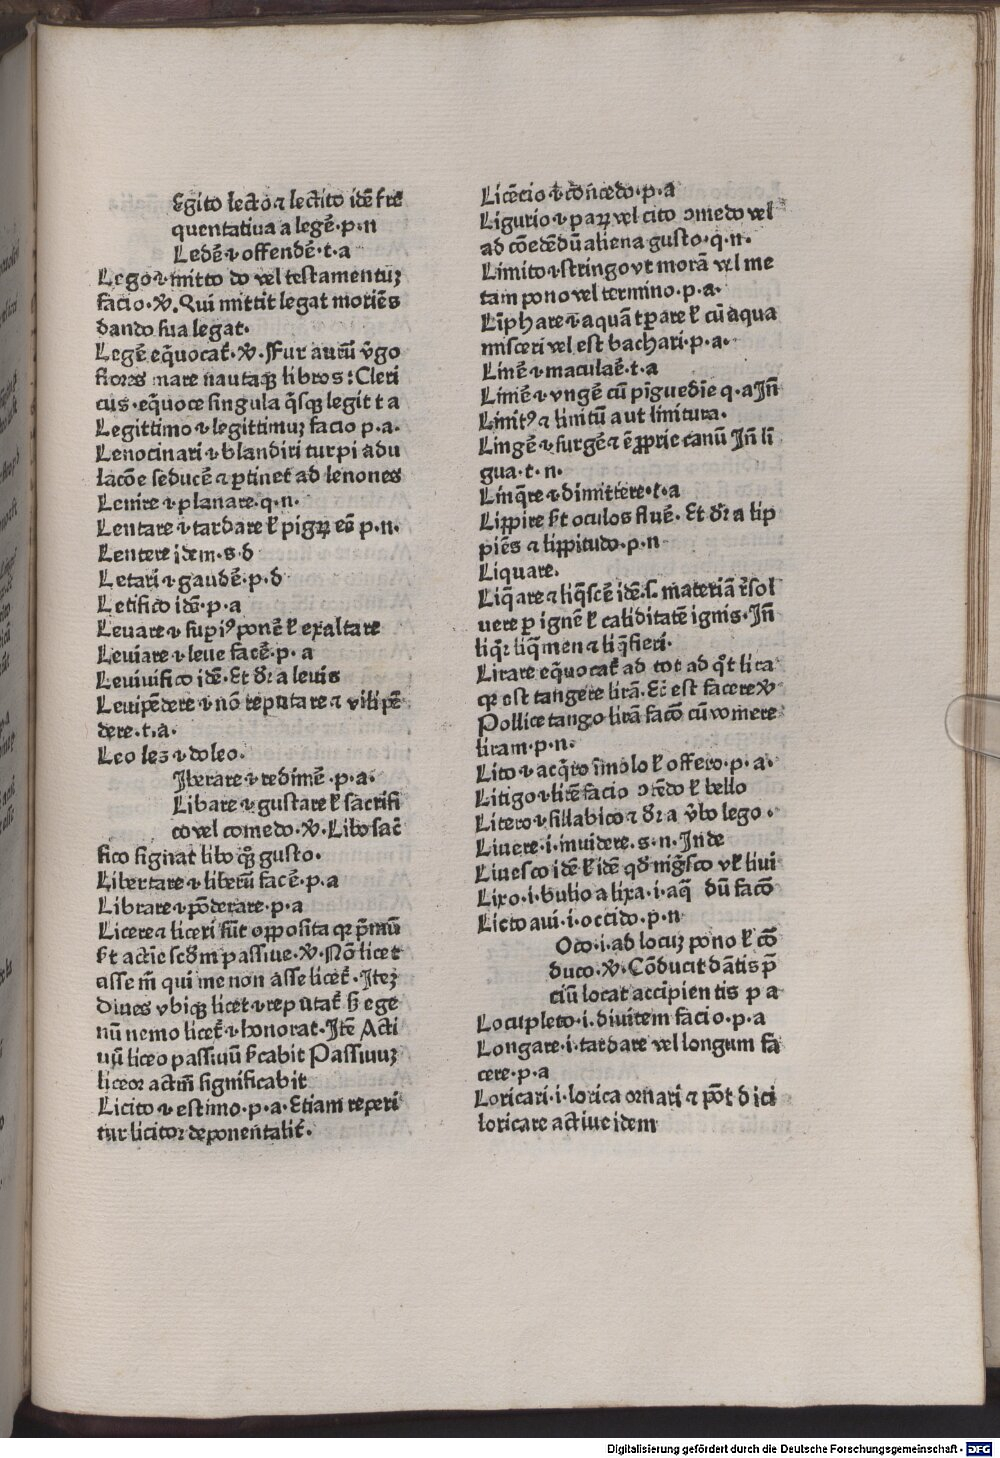 Egito lecto ⁊ lectito idē fre
quentatiua a legē·p·n
Ledē ⁊ offendē·t·a
Lego ⁊ mitto do vel testamentuʒ
facio·℣·Qui mittit legat moriēs
dando sua legat·
Legē eq̄uocat᷑·℣·Fur auꝝ v̄go
flores mare nautaqꝫ libros: Cleri
cus·eq̄uoce singula q̄sqꝫ legit t a
Legittimo ⁊ legittimuʒ facio p·a·
Lenocinari ⁊ blandiri turpi adu
lacōe seducē ⁊ ꝑtinet ad lenones
Lenire ⁊ planare·q·n·
Lentare ⁊ tardare ł pigrū eē p·n·
Lentere idem·s·d
Letari ⁊ gaudē·p·d
Letifico idē·p·a
Leuare ⁊ supiꝰ ponē ł exaltare
Leuiare ⁊ leue facē·p·a
Leuiuifico idē·Et dr̄ a leuis
Leuipēdere ⁊ nō reputare ⁊ vilipē
dere·t·a·
Leo les ⁊ doleo·
Iberare ⁊ redimē·p·a·
Libare ⁊ gustare ł sacrifi
co vel comedo·℣·Libo sac̄
fico signat libo qꝫ gusto·
Libertare ⁊ liberū facē·p·a
Librare ⁊ pōderare·p·a
Licere ⁊ liceri sūt opposita qꝛ p̄mū
ht actiē scd̄m passiue·℣·Nō licet
asse m̄ qui me non asse licet᷑·Iteʒ
diues vbiqꝫ licet ⁊ reputat᷑ sʒ ege
nū nemo licet᷑ ⁊ honorat·Itē Acti
uū liceo passiuū ſcabit Passiuuʒ
liceor actm̄ significabit
Licito ⁊ estimo·p·a·Etiam reperi
tur licitor deponentalit᷑·
Licēcio ⁊ cōncedo·p·a
Ligurio ⁊ paꝝ vel cito ↄmedo vel
ad cōedēdū aliena gusto·q·n·
Limito ⁊ stringo vt morā vel me
tam pono vel termino·p·a·
Līphare ē aquā tꝑare ł cū aqua
misceri vel est bachari·p·a·
Linē ⁊ maculaē·t·a
Linē ⁊ vngē cū pīguedīe q·a Iñ
Linitꝰ ⁊ linitū aut linitura·
Lingē ⁊ surgē ⁊ ē ꝓprie canū Iñ li
gua·t·n·
Linq̄re ⁊ dimittere·t·a
Lippire ht oculos fluē·Et dr̄ a lip
piēs ⁊ lippitudo·p·n
Liquare·
Liq̄are ⁊ liq̄scē idē·s· materiā r̄sol
uere ꝑ ignē ł caliditatē ignis·Iñ
liq̄r liq̄men ⁊ liq̄fieri·
Lirare eq̄uocat᷑ ad tot ad qͦt lira
qꝛ est tangere lirā·Et est facere ℣
Pollice tango lirā facō cū vomere
liram·p·n·
Lito ⁊ acq̄ro imolo ł offero·p·a·
Litigo ⁊ litē facio ↄtēdo ł bello
Litero ⁊ sillabico ⁊ dr̄ a v̄bo lego·
Liuere·i·inuidere·s·n·Inde
Liuesco idē ł idē qd̄ nig̃sco vł liui
Lixo·i·bulio a lixa·i·aq̄ dū facō
Licto aui·i·occido·p·n
Oco·i·ad locuʒ pono ł cō
duco·℣·Cōducit dātis p̄
ciū locat accipientis p a
Locupleto·i·diuitem facio·p·a
Longare·i·tardare vel longum fa
cere·p·a
Loricari·i·lorica ornari ⁊ pōt dici
loricare actiue idem
Digitalisierung gefördert durch die Deutsche Forschungsgemeinschaft - DFG